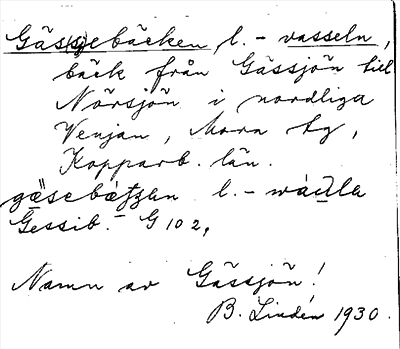 Gäs(s)jebäcken l. - vasseln,
bäck från Gässjön till
Nörsjön i nordliga
Venjan, Mora tg,
Kopparb. län.
l. -
Gessib. - G 102,
Namn av Gässjön!
B. Lindén 1930.